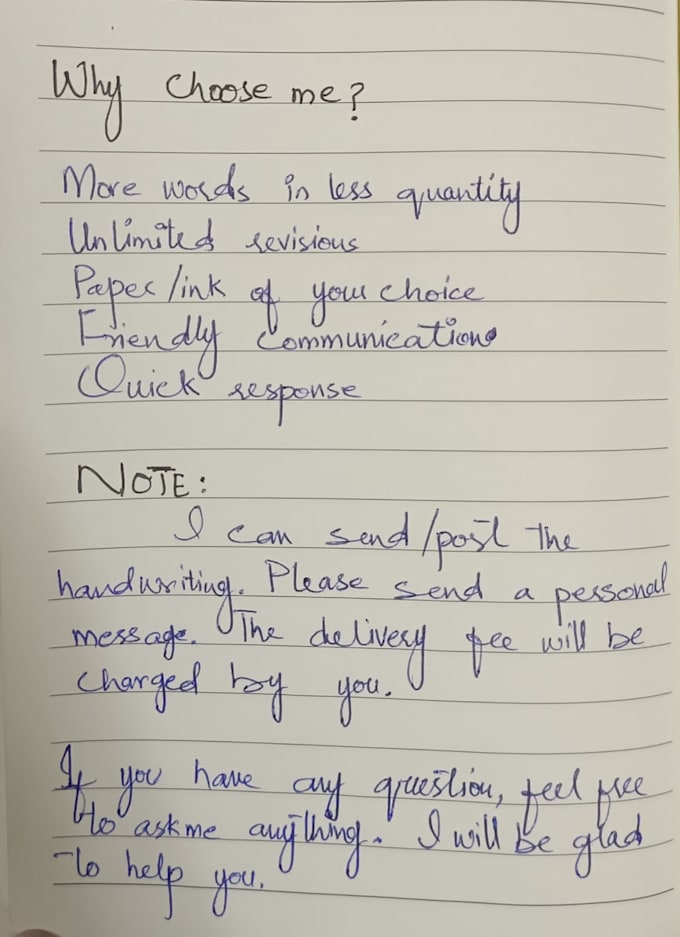 Why choose me?
More words in less quantity
Unlimited revisious
Paper/ink of your choice
Friendly Communication
Quick response
NOTE:
I can send/post the
handwriting. Please send a personal
message. The delivery fee will be
charged by you.
If you have any question, feel free
to ask me anything. I will be glad
to help you.